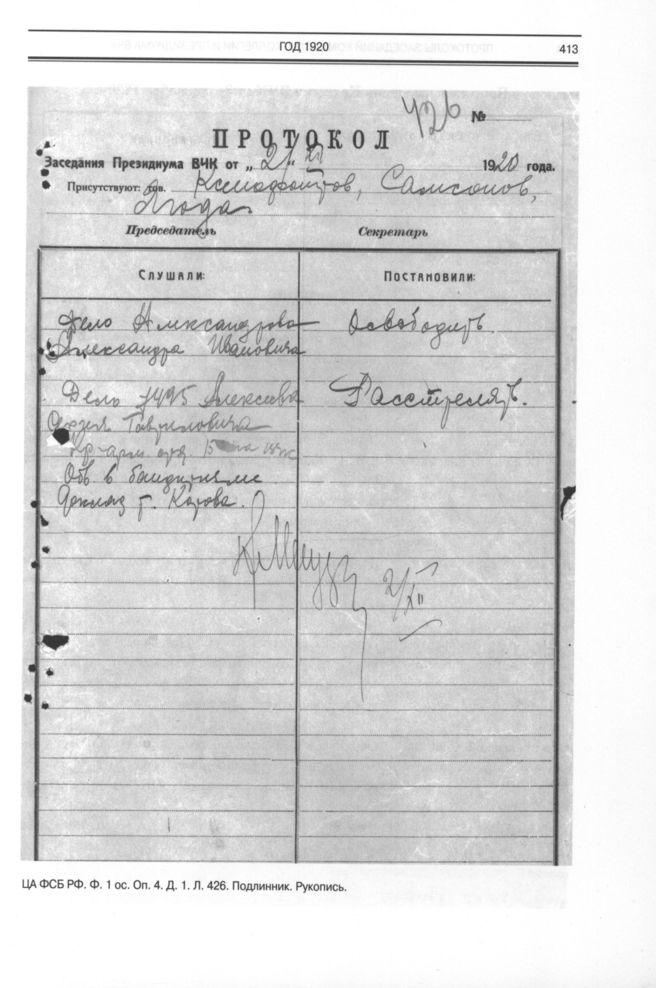 ГОД 1920
413
426 №
ПРОТОКОЛ
Заседания Президиума ВЧК от „ 2/XII 1920 года.
Присутствуют: тов. Ксенофонтов, Самсонов,
Ягода.
Председатель Секретарь
Слушали: Постановили:
Дело Александрова Освободить.
Александра Ивановича
Дело Алексеева Расстрелять.
Гавриловича
Обв. в бандитизме
Доклад т.
2/XII
ЦА ФСБ РФ. Ф. 1 ос. Оп. 4. Д. 1. Л. 426. Подлинник. Рукопись.